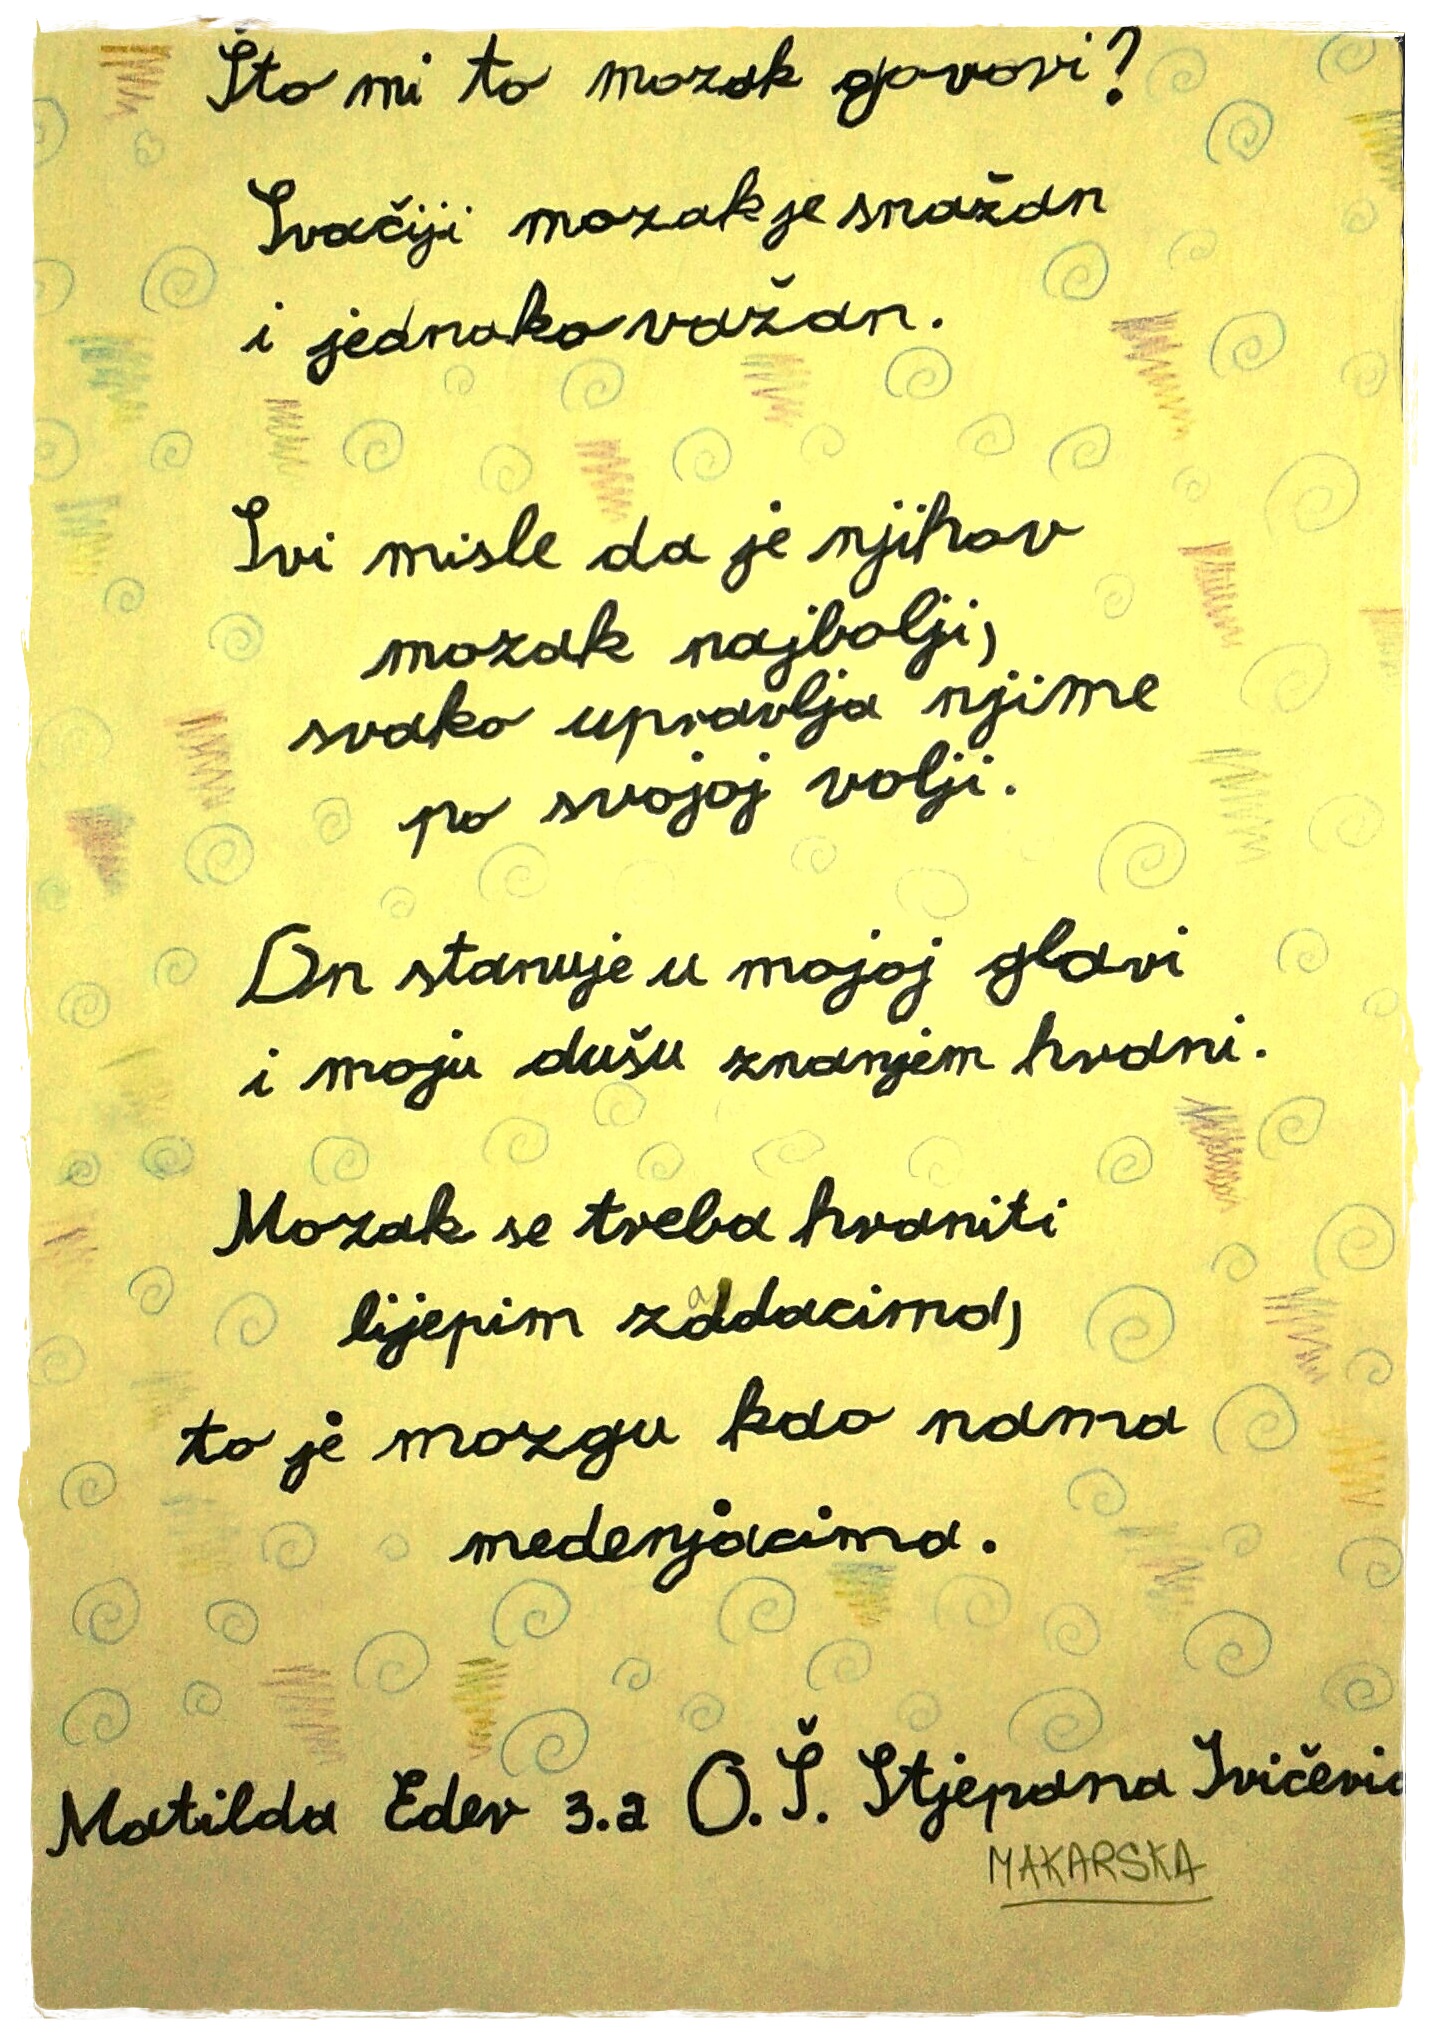 Što mi to mozak govori?
Svačiji mozak je snažan
i jednako važan.
Svi misle da je njihov
mozak najbolji,
svako upravlja njime
po svojoj volji.
On stanuje u mojoj glavi
i moju dušu znanjem hrani.
Mozak se treba hraniti
lijepim zadacima,
to je mozgu kao nama
medenjacima.
Matilda Eder 3.a O.Š. Stjepana Ivičevic
MAKARSKA